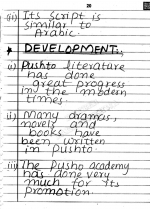 20
(ii) Its script is
similar to
Arabic.
★ DEVELOPMENT:
(i) Pushto literature
has done
great progress
in the modern
times.
ii) Many dramas,
novels and
books have
been written
in Pushto.
iii) The Pusho academy
has done very
much for its
promotion.